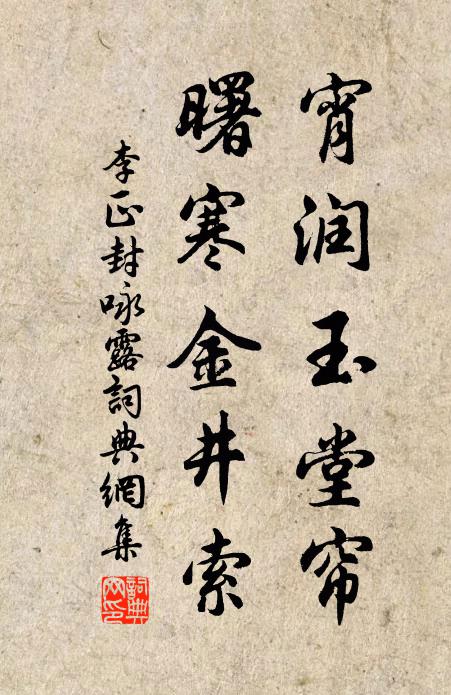 宵润玉堂帘
曙寒金井索
李正封咏露詞典網集
詞典网印